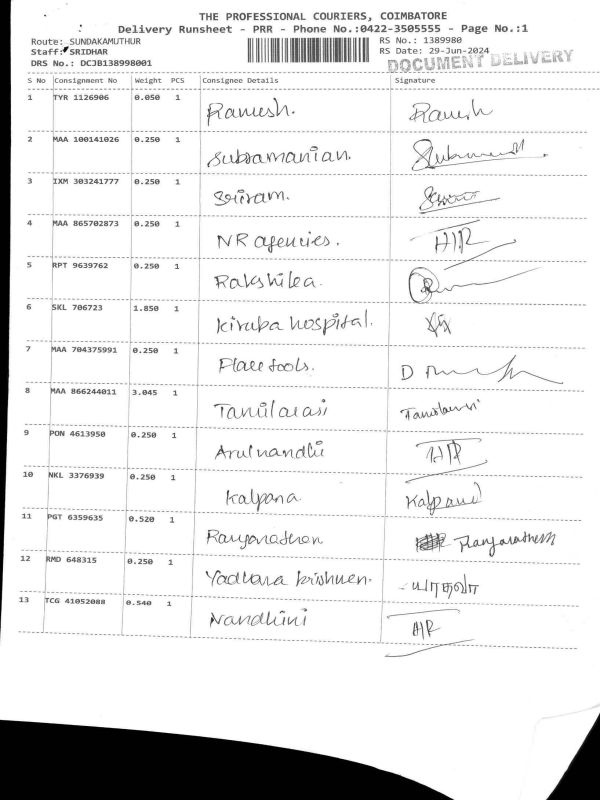 THE PROFESSIONAL COURIERS, COIMBATORE
Delivery Runsheet - PRR - Phone No.:0422-3505555 - Page No.:1
Route: SUNDAKAMUTHUR RS No.: 1389980
Staff: SRIDHAR RS Date: 29-Jun-2024
DRS No.: DCJB138998001 DOCUMENT DELIVERY
S No Consignment No Weight PCS Consignee Details Signature
1 TYR 1126906 0.050 1 Ramesh. Ramesh
2 MAA 100141026 0.250 1 Subramanian.
3 IXM 303241777 0.250 1 Sriram.
4 MAA 865702873 0.250 1 NR agencies. H/R
5 RPT 9639762 0.250 1
6 SKL 706723 1.850 1 Kiruba hospital.
7 MAA 704375991 0.250 1 tools.
8 MAA 866244011 3.045 1 Tamilarasi
9 PON 4613950 0.250 1 Arulnandhi H/R
10 NKL 3376939 0.250 1 Kalpana
11 PGT 6359635 0.520 1
12 RMD 648315 0.250 1 யாதவா
13 TCG 41052088 0.540 1 Nandhini H/R